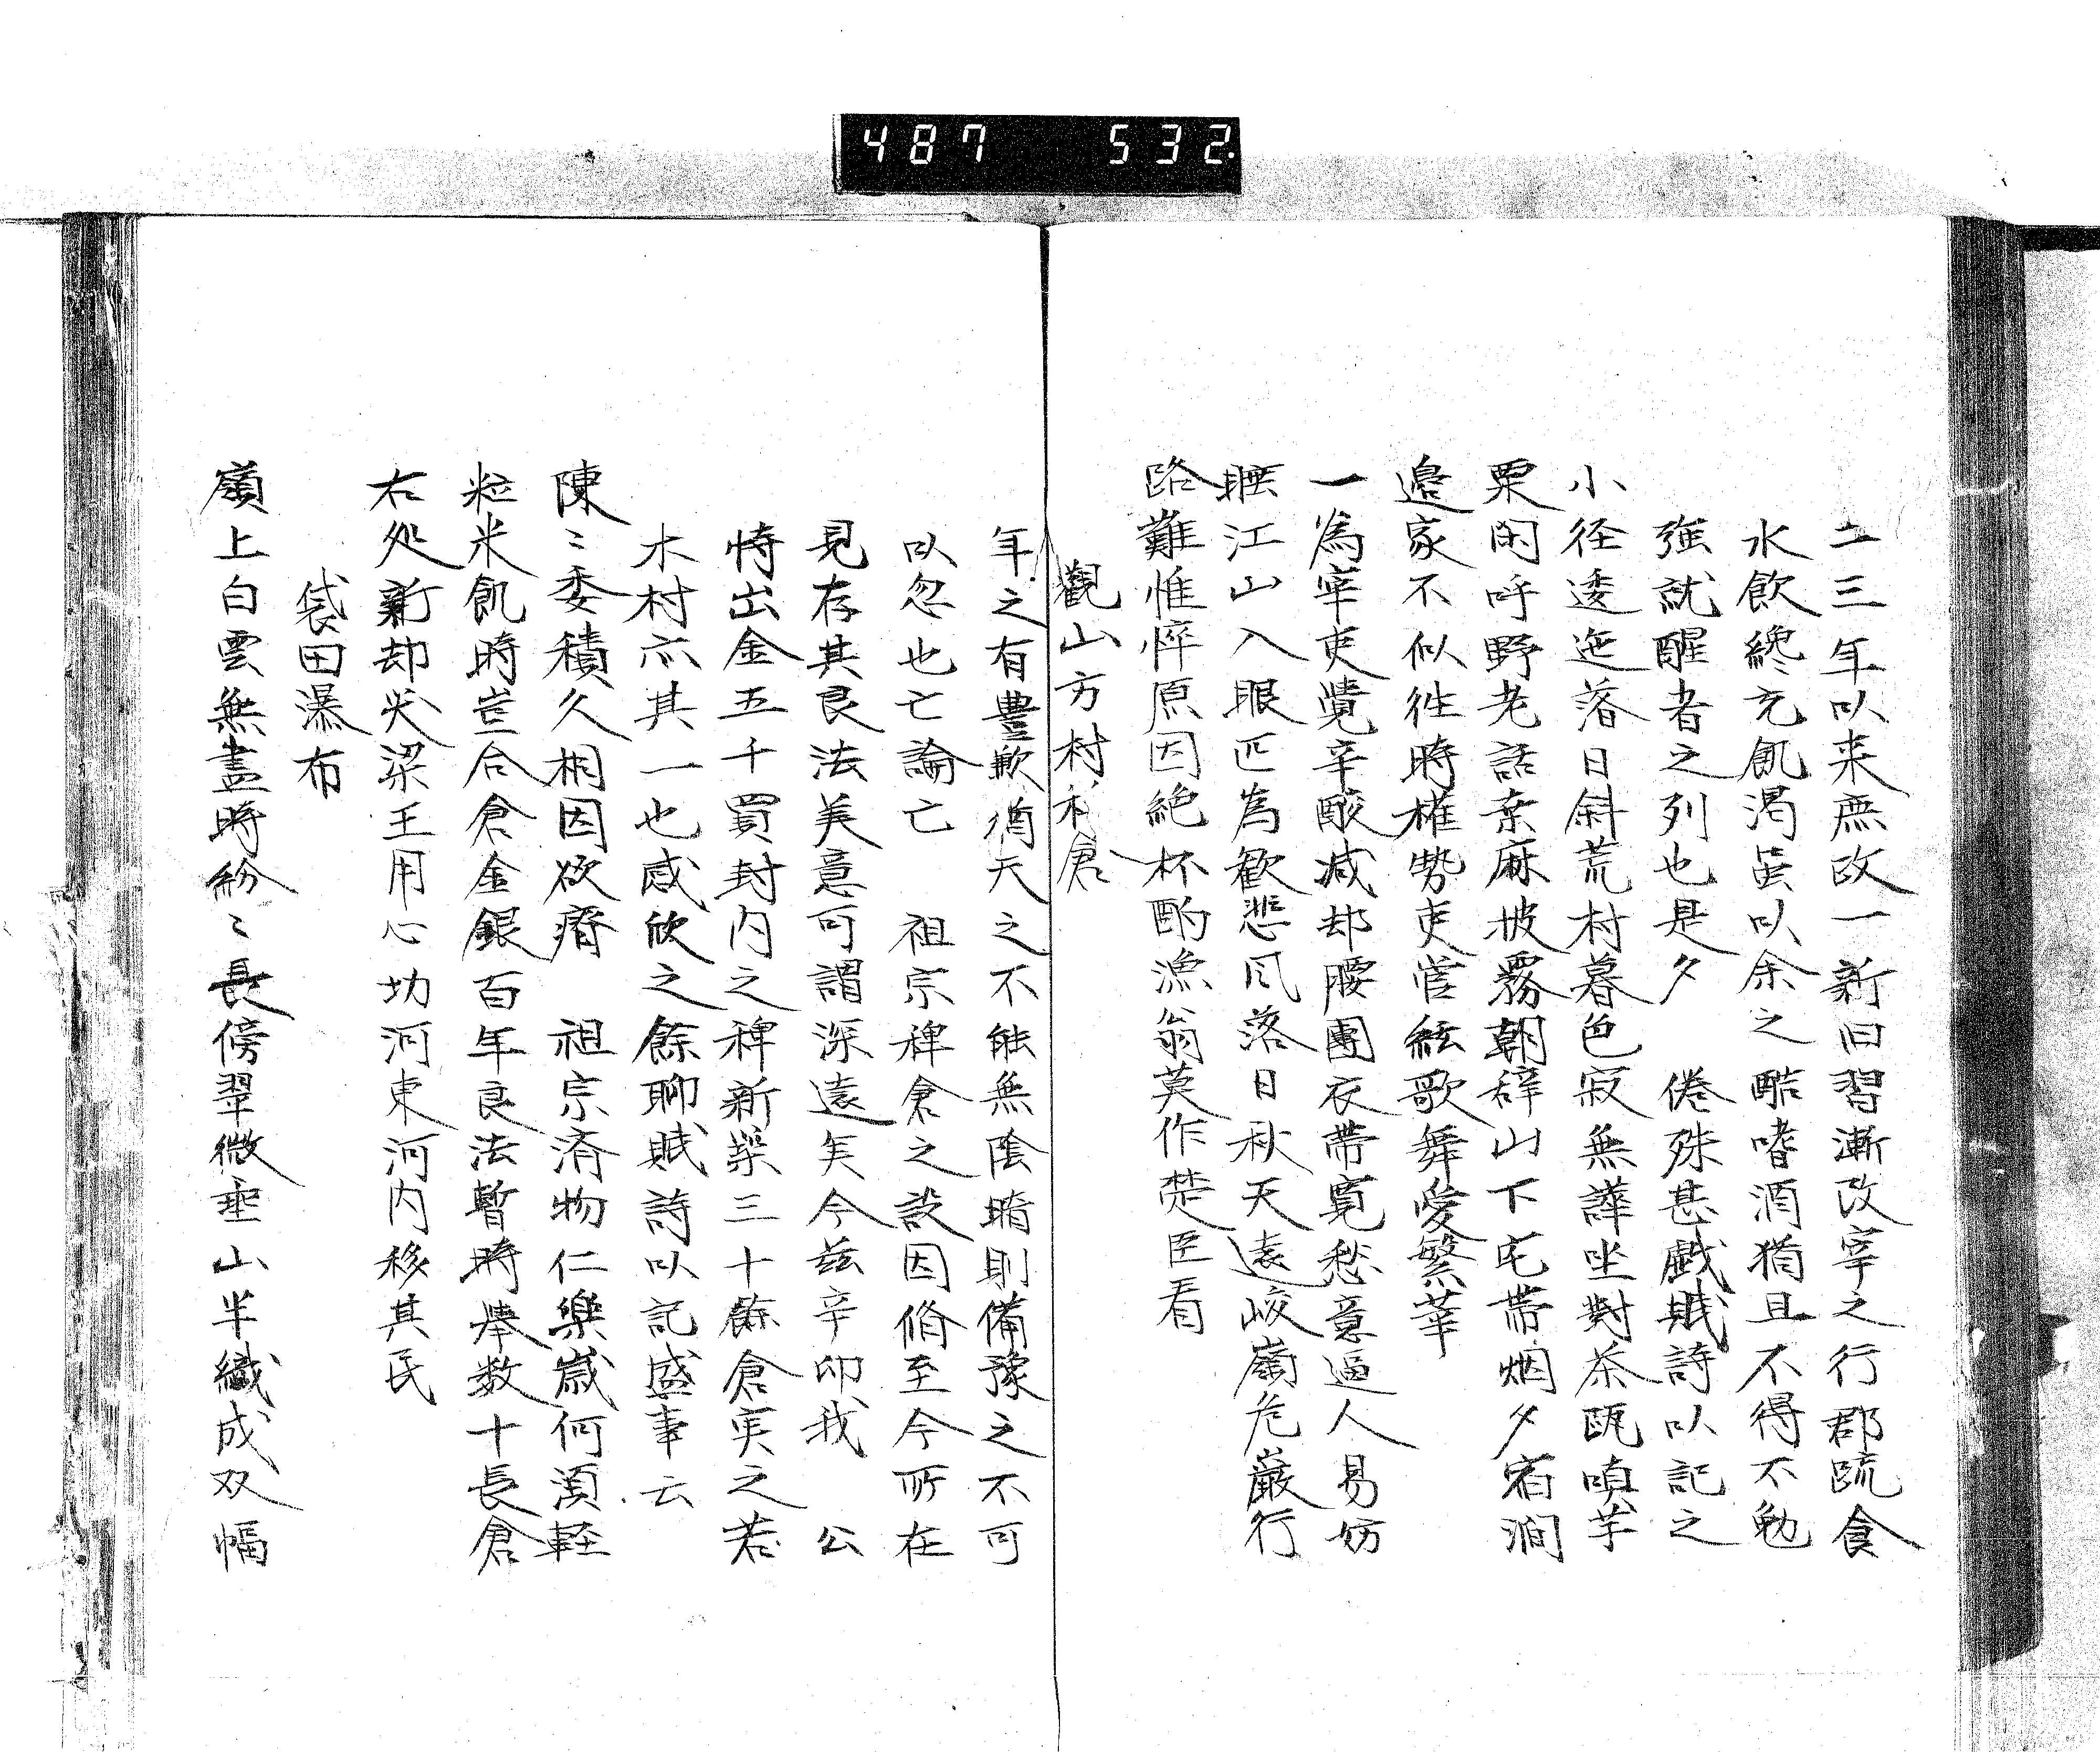 487 532.
二三年以来庶政一新旧習漸改宰之行郡疏食
水飲纔充飢渇虽以余之酷嗜酒猶且不得不勉
強就醒者之列也是夕 倦殊甚戯賦詩以記之
小径逶迤落日斜荒村暮色寂無譁坐對茶甌嗔芋
栗閑呼野老話桑麻披霧朝辞山下宅帯烟夕宿澗
邉家不似徃時權勢吏管絃歌舞愛繁華
一為宰吏覺辛酸减却腰圍衣帯寛愁意逼人易妨
睡江山入眼叵為歓悲風落日秋天遠峻嶺危巖行
路難惟悴原因絶杯酌漁翁莫作楚臣看
觀山方村稗倉
年之有豊歉猶天之不能無陰晴則備豫之不可
以忽也亡論亡 祖宗稗倉之設因脩至今所在
見存其良法美意可謂深遠矣今茲辛卯我 公
特出金五千買封内之稗新築三十餘倉実之若
木村亦其一也感欣之餘聊賦詩以記盛事云
陳〻委積久相因欲瘠 祖宗済物仁樂歳何湏軽
粒米飢時豈合倉金銀百年良法暫時舉数十長倉
右処新却笑梁王用心功河東河内移其民
袋田瀑布
嶺上白雲無盡時紛〻長傍翠微垂山半織成双幅